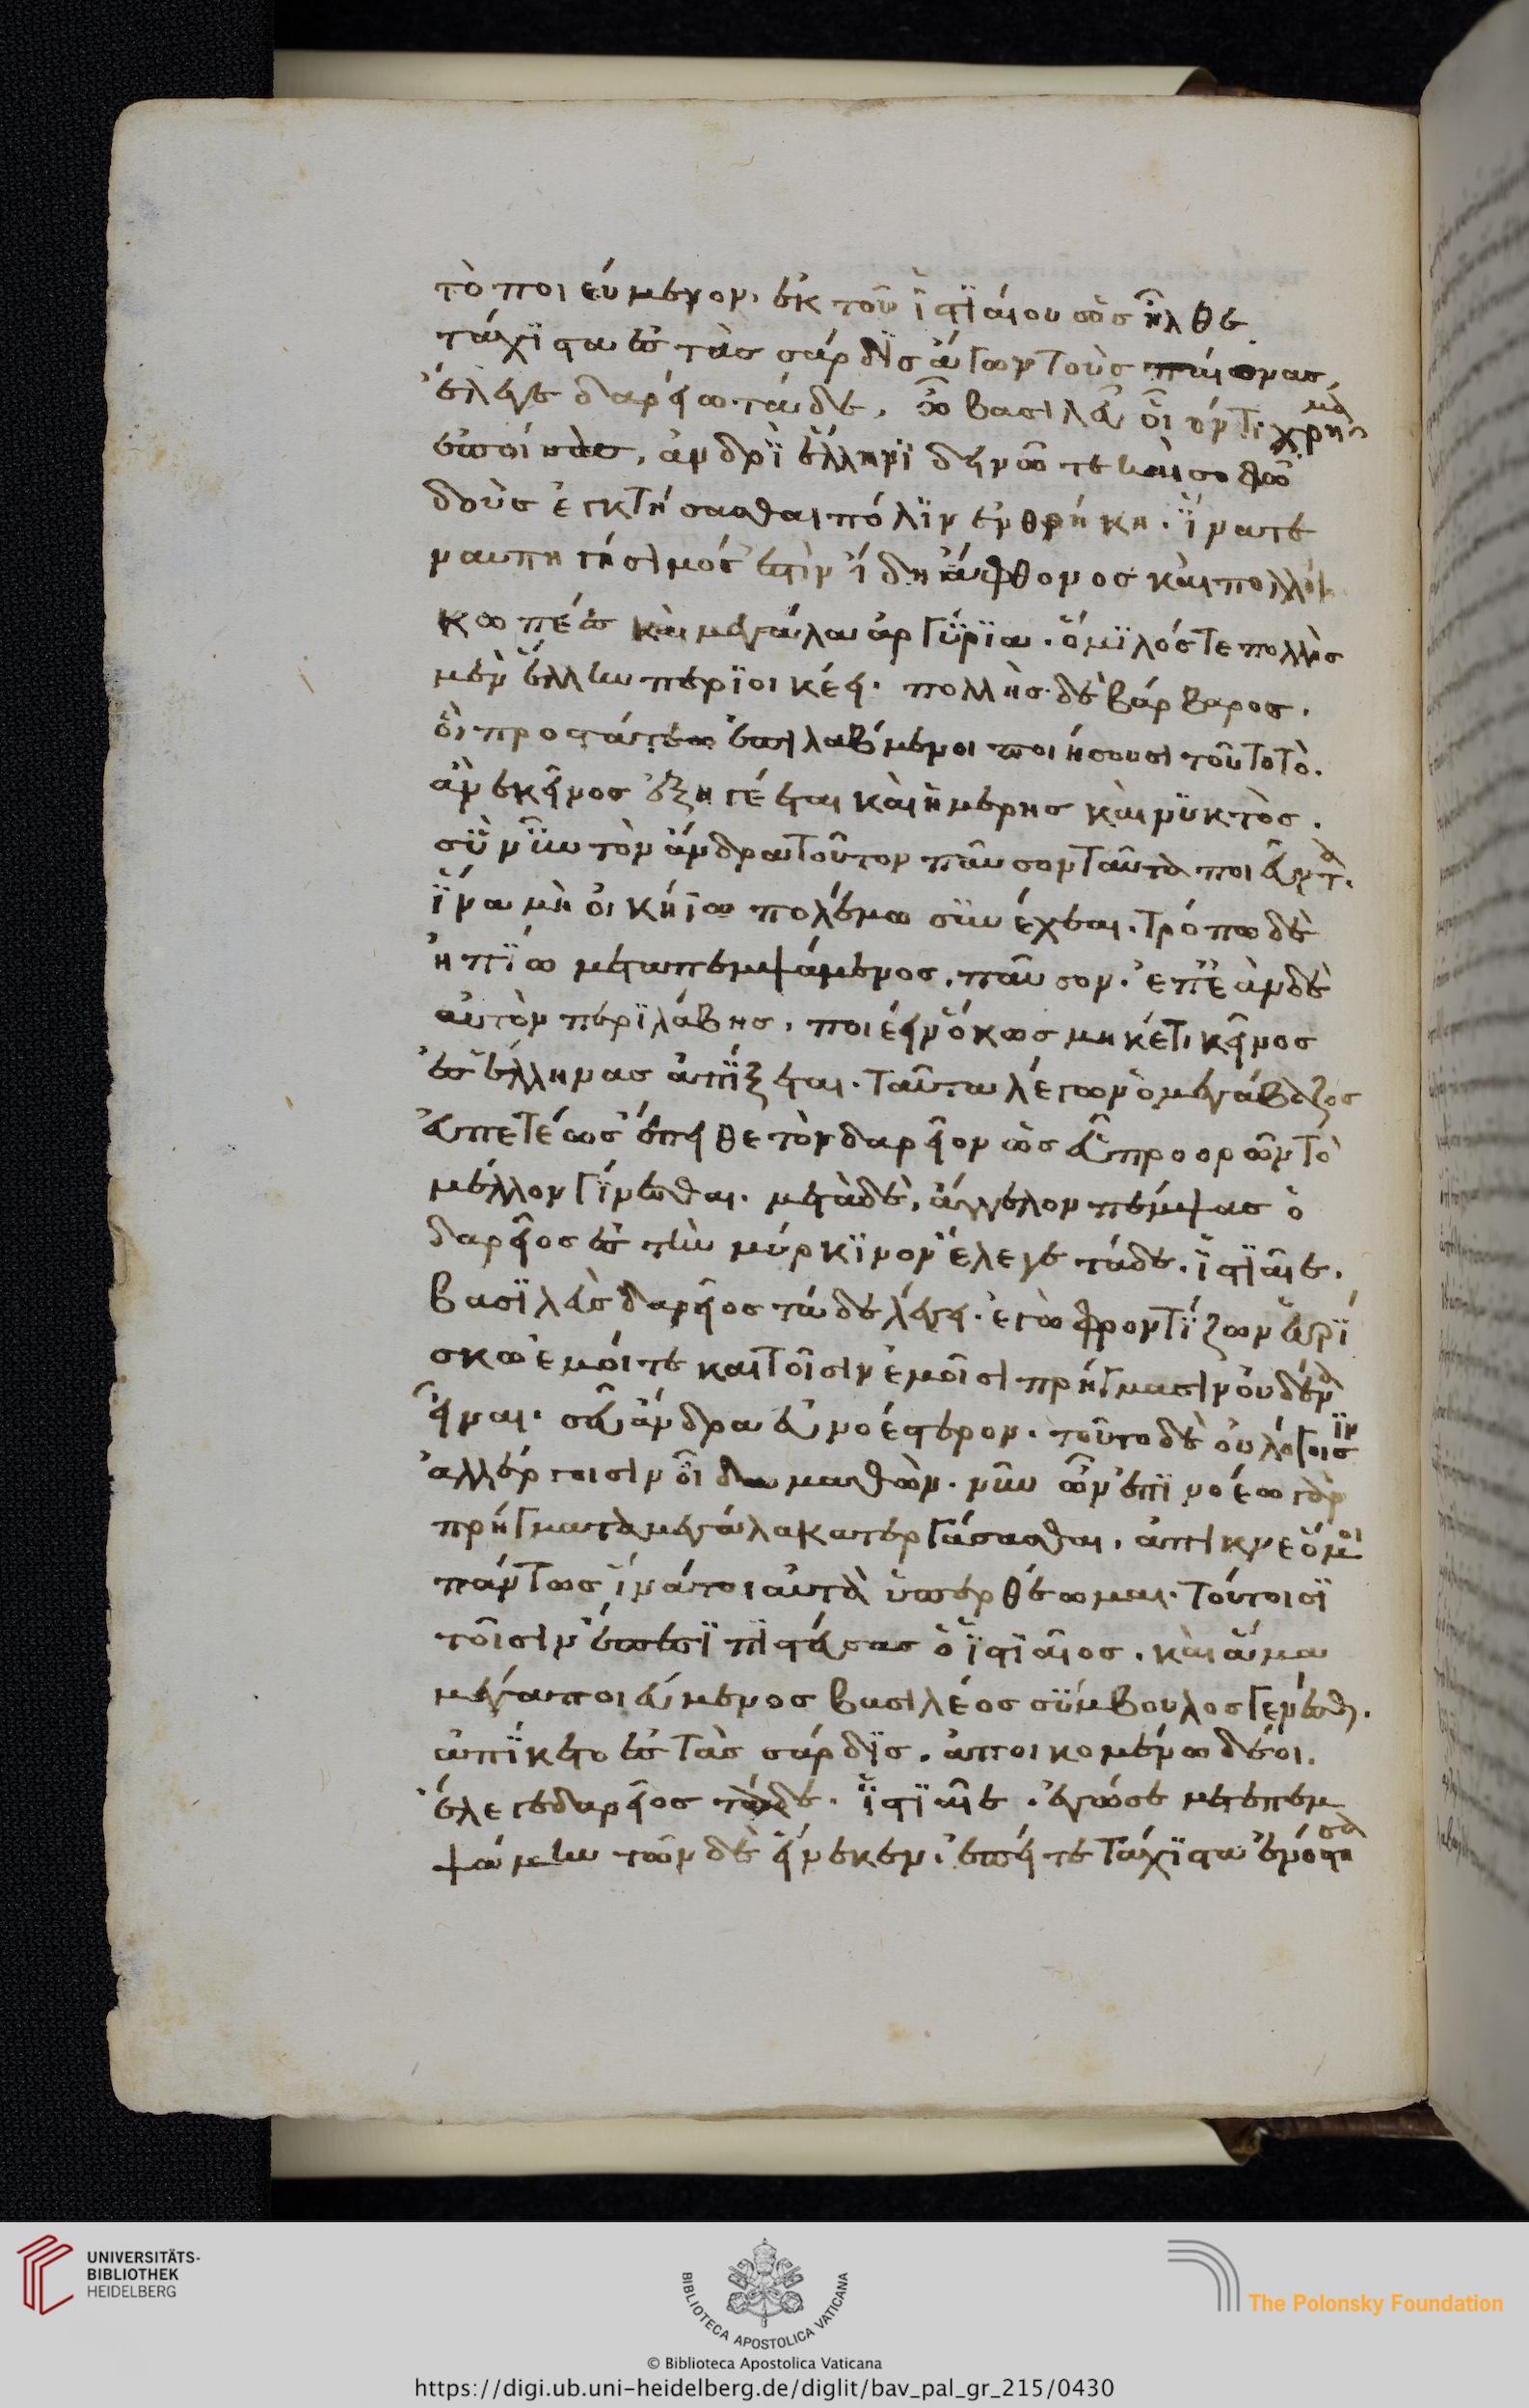 τὸ ποιεύμενον. ἐκ τοῦ ἱστιαίου ὡς ἦλθε
τάχιστα ἐς τὰς σάρδις ἄγων τοὺς παίονας,
ἔλεγε δαρείω τάδε. ὦ βασιλεῦ οἷόν τι χρῆμα
ἐποίησας, ἀνδρὶ ἕλληνι δεινῶ τε καὶ σοφῶ
δοὺς ἐγκτήσασθαι πόλιν ἐν θρήκη. ἵνα τε
ναυπηγήσιμός ἐστιν ἴδη ἄφθονος καὶ πολλοὶ
κωπέες καὶ μεγάλα ἀργύρια. ὅμιλός τε πολλὸς
μὲν ἕλλην περιοικέει. πολλὸς δὲ βάρβαρος.
οἳ προστάτεω ἐπιλαβόμενοι ποιήσουσι τοῦτο τὸ.
ἂν ἐκεῖνος ἐξηγέεται καὶ ἡμέρης καὶ νυκτὸς.
σὺ νῦν τὸν ἄνδρα τοῦτον παῦσον ταῦτα ποιεῦντα.
ἵνα μὴ οἰκηίω πολέμω συνέχεαι. τρόπω δὲ
ἠπίω μεταπεμψάμενος. παῦσον. ἐπεὰν δὲ
αὐτὸν περιλάβης. ποιέειν ὅκως μηκέτι κεῖνος
ἐς ἕλληνας ἀπίξεται. ταῦτα λέγων ὁ μεγάβαζος
εὐπετέως ἔπειθε τὸν δαρεῖον ὡς εὖ προορῶν τὸ
μέλλον γίνεσθαι. μετὰ δὲ, ἄγγελον πέμψας ὁ
δαρεῖος ἐς τὴν μύρκινον ἔλεγε τάδε. ἱστιαῖε.
βασιλεὺς δαρεῖος τάδε λέγει. ἐγὼ φροντίζων εὑρί
σκω ἐμοί τε καὶ τοῖσιν ἐμοῖσι πρήγμασιν οὐδένα
εἶναι. σεῦ ἄνδρα εὐνοέστερον. τοῦτο δὲ οὐ λόγοισιν
ἀλλ' ἔργοισιν οἶδα μαθών. νῦν ὦν ἐπινοέω γὰρ
πρήγματα μεγάλα κατεργάσασθαι. ἀπικνέο μοι
πάντως ἵνα τοι αὐτὰ ὑπερθέωμαι. τούτοισι
τοῖσιν ἔπεσι πιστεύσας ὁ ἱστιαῖος. καὶ ἅμα
μέγα ποιεύμενος βασιλέος σύμβουλος γενέσθαι.
ἀπίκετο ἐς τὰς σάρδις. ἀπικομένω δέ οἱ.
ἔλεγε δαρεῖος τάδε. ἱστιαῖε. ἐγώ σε μετεπεμ
ψάμην τῶνδε εἵνεκεν. ἐπεί τε τάχιστα ἐνόστησα
UNIVERSITÄTS-
BIBLIOTHEK
HEIDELBERG
BIBLIOTECA APOSTOLICA VATICANA
The Polonsky Foundation
© Biblioteca Apostolica Vaticana
https://digi.ub.uni-heidelberg.de/diglit/bav_pal_gr_215/0430